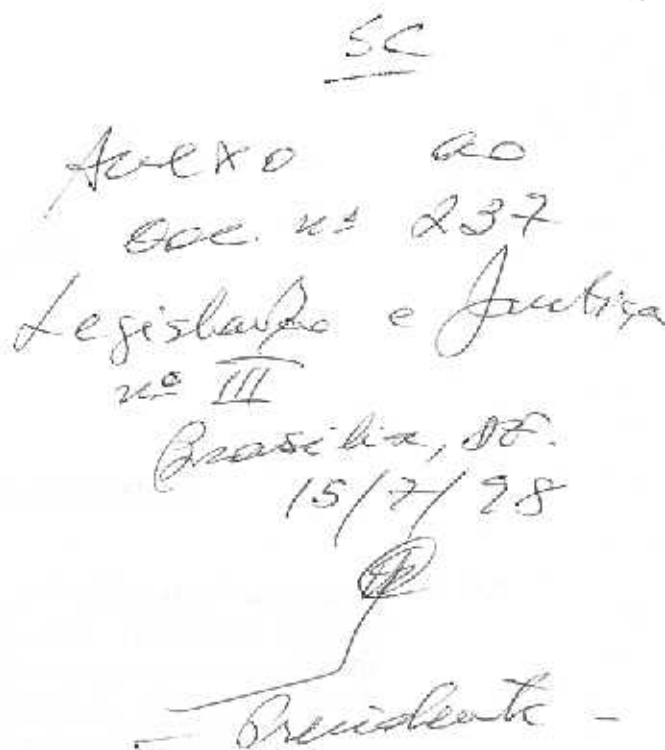 SC
Anexo ao
Doc. nº 237
Legislação e Justiça
nº III
Brasília, DF.
15/7/98
- Presidente -